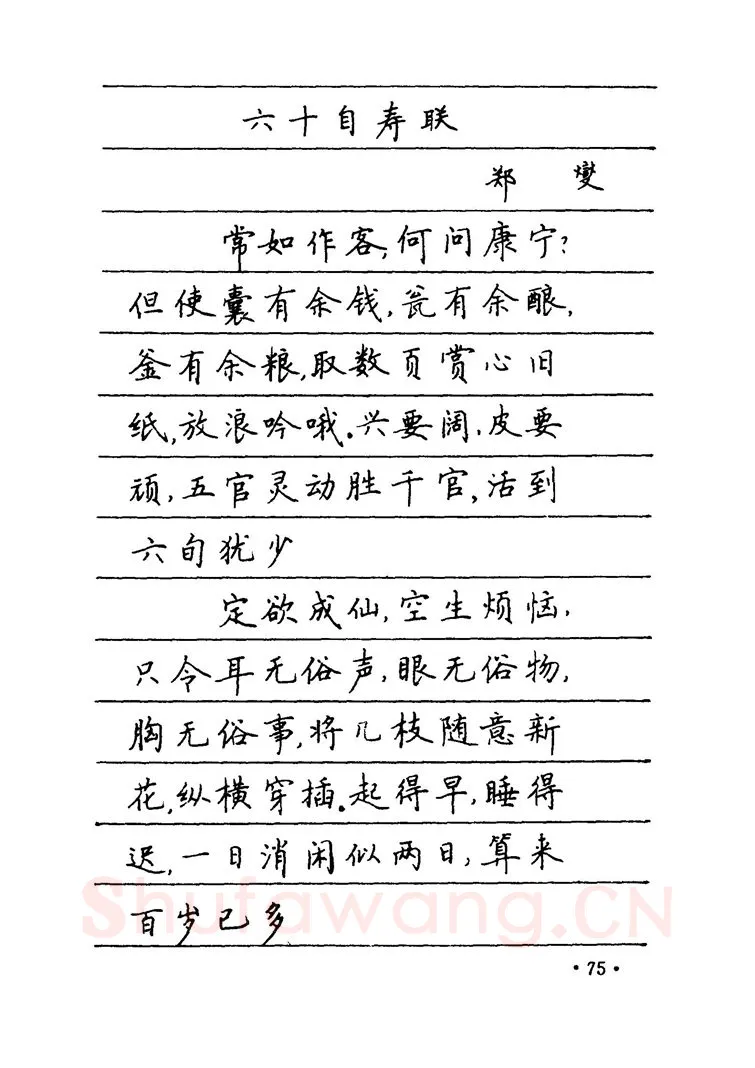 六十自寿联
郑 燮
常如作客,何问康宁?
但使囊有余钱,瓮有余酿,
釜有余粮,取数页赏心旧
纸,放浪吟哦.兴要阔,皮要
顽,五官灵动胜千官,活到
六旬犹少
定欲成仙,空生烦恼,
只令耳无俗声,眼无俗物,
胸无俗事,将几枝随意新
花,纵横穿插.起得早,睡得
迟,一日消闲似两日,算来
百岁已多
Shufawang.CN
·75·